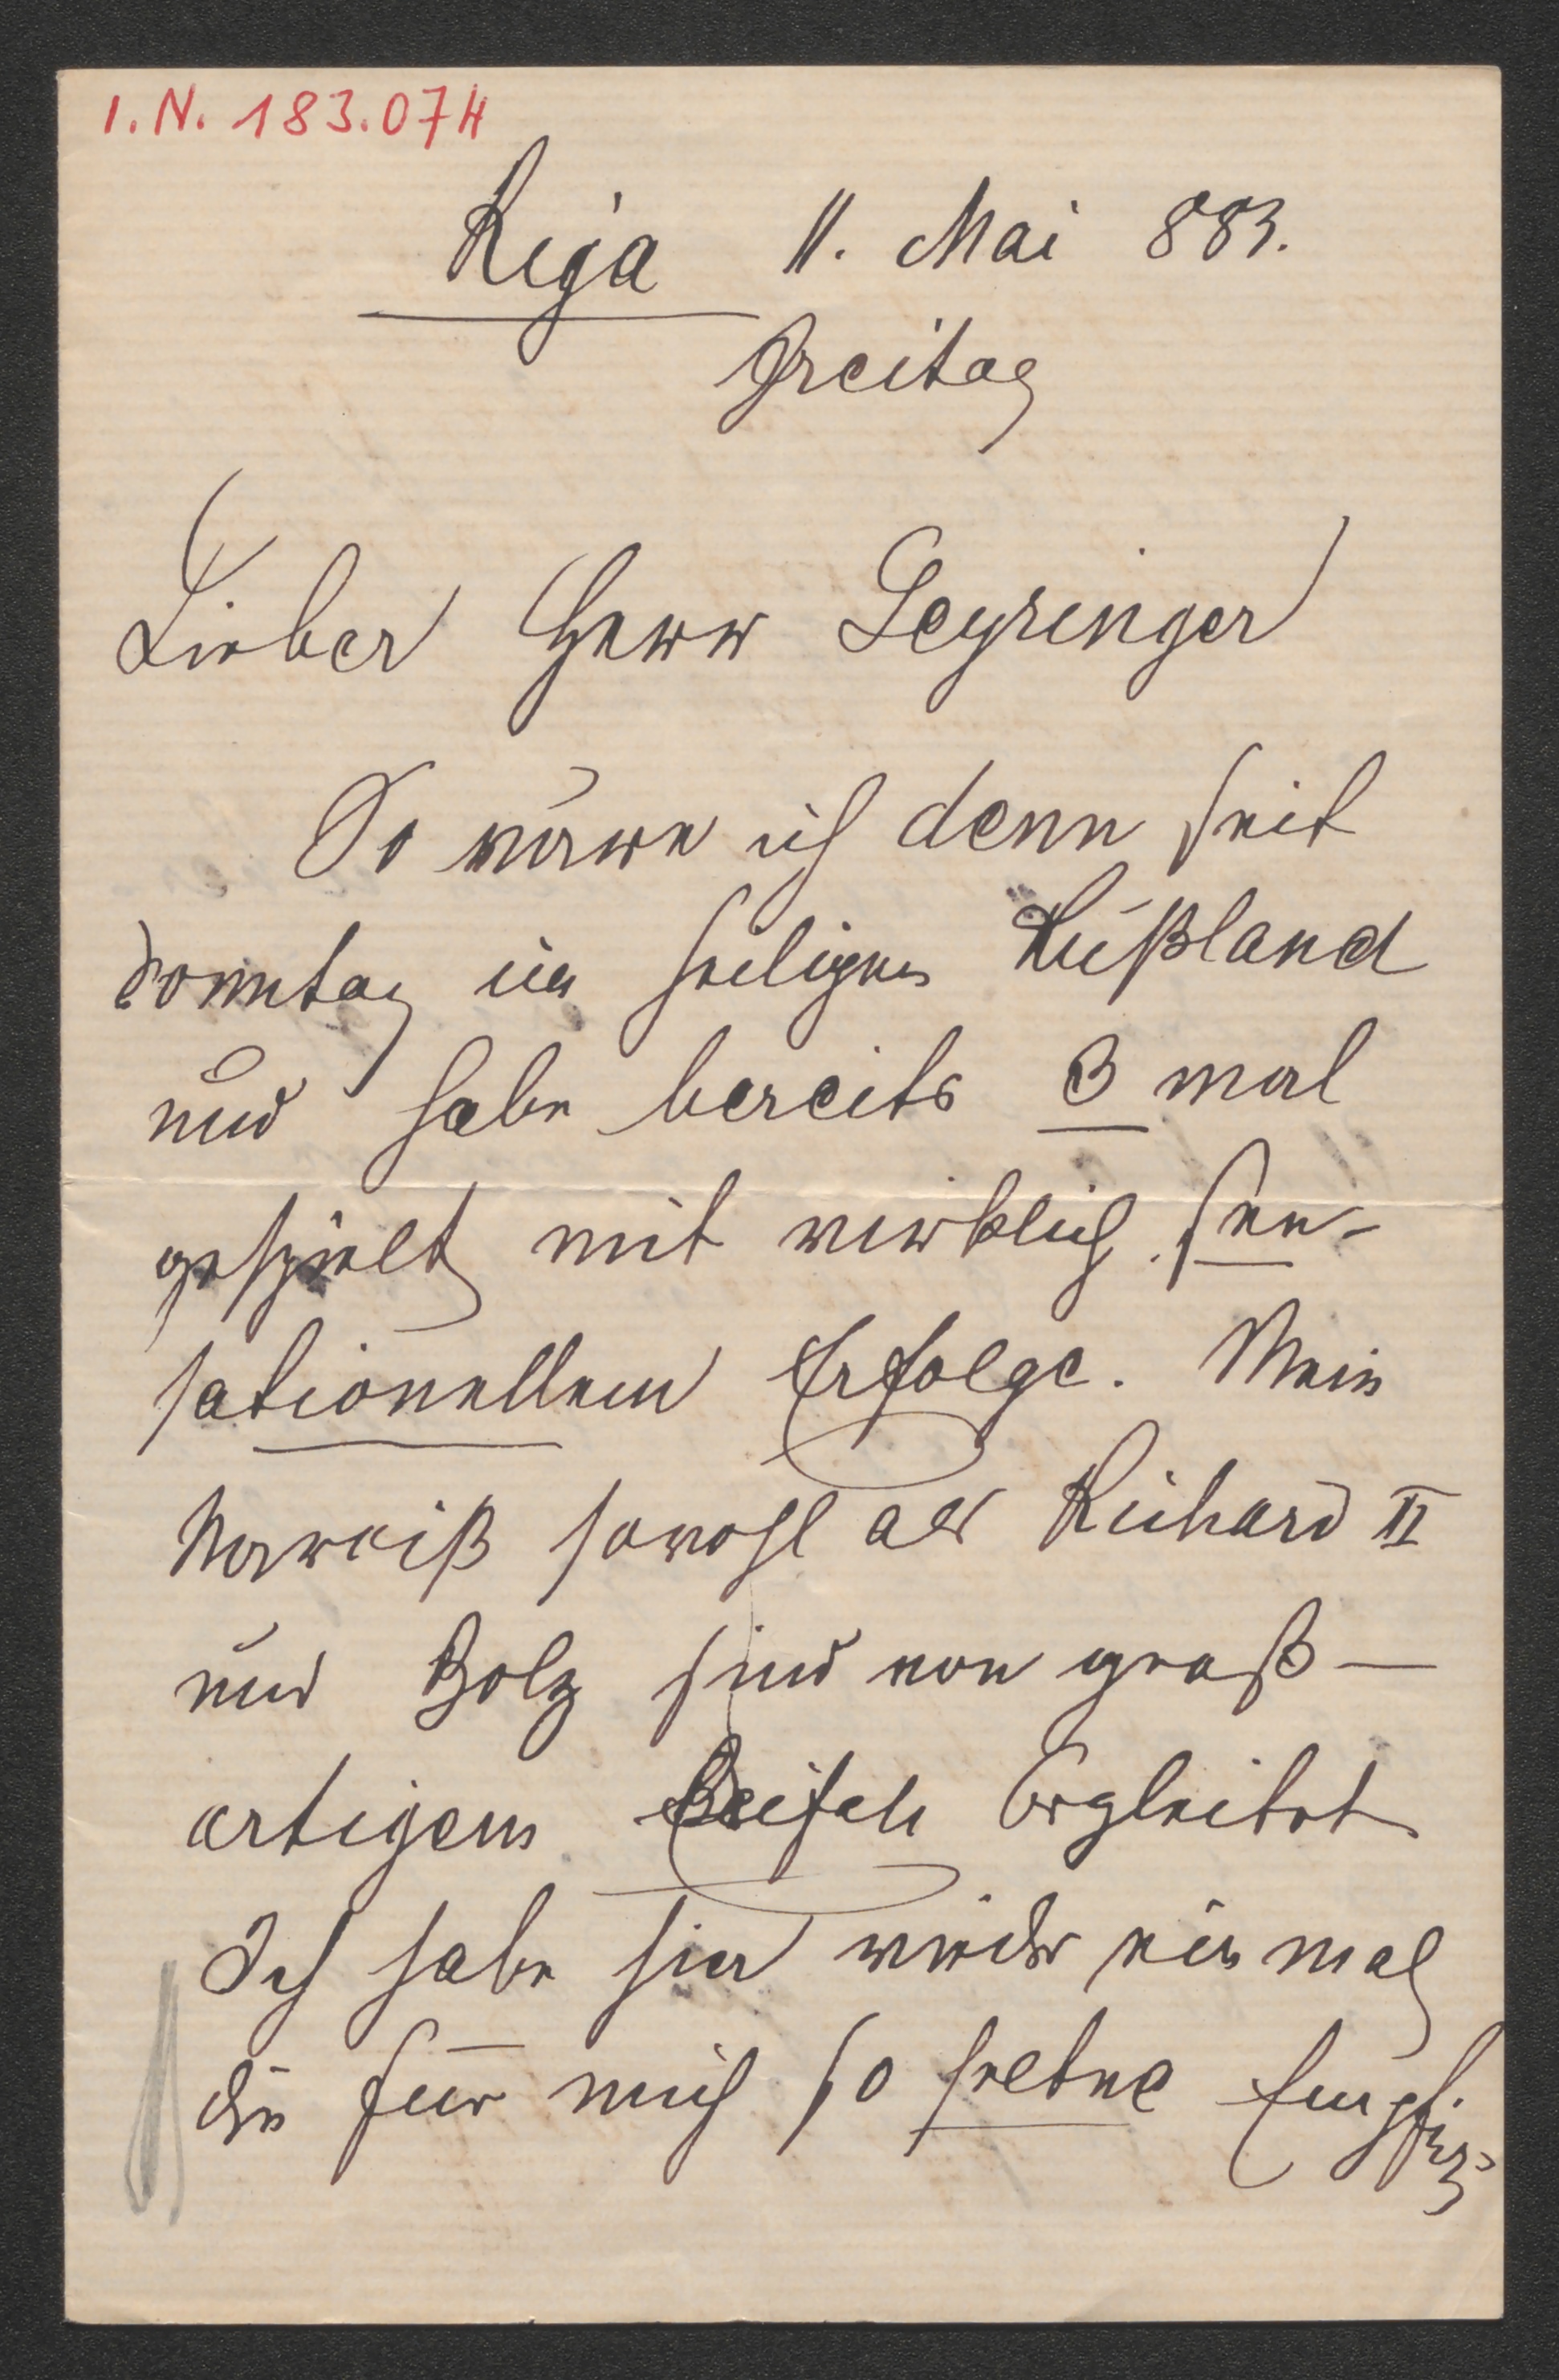 I.N. 183.074
Riga 11. Mai 883.
Freitag
Lieber Herr Seyringer
So wäre ich denn seit
Sonntag im heiligen Rußland
und habe bereits 3 mal
gespielt mit wirklich sen-
sationellem Erfolge. Mein
Narciß sowohl als Richard II
und Bolz sind von groß-
artigem Beifall begleitet
Ich habe hier wieder einmal
die für mich so seltne